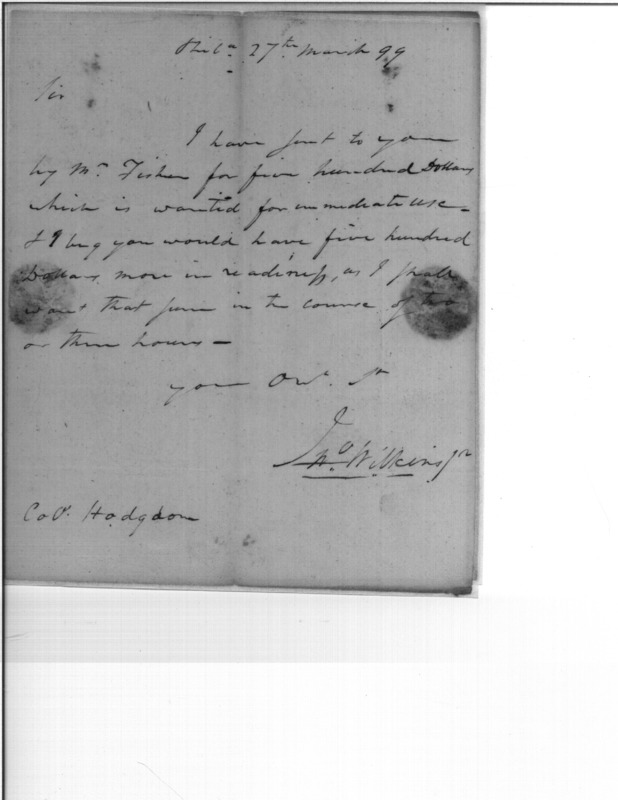 Phila. 27th. March 99
Sir
I have sent to you
by Mr. Fisher for five hundred Dollars
which is wanted for immediate use –
& I beg you would have five hundred
Dollars more in readiness, as I shall
want that sum in the course of two
or three hours –
your Obt. St
Jno. Wilkins Jr
Col. Hodgdon